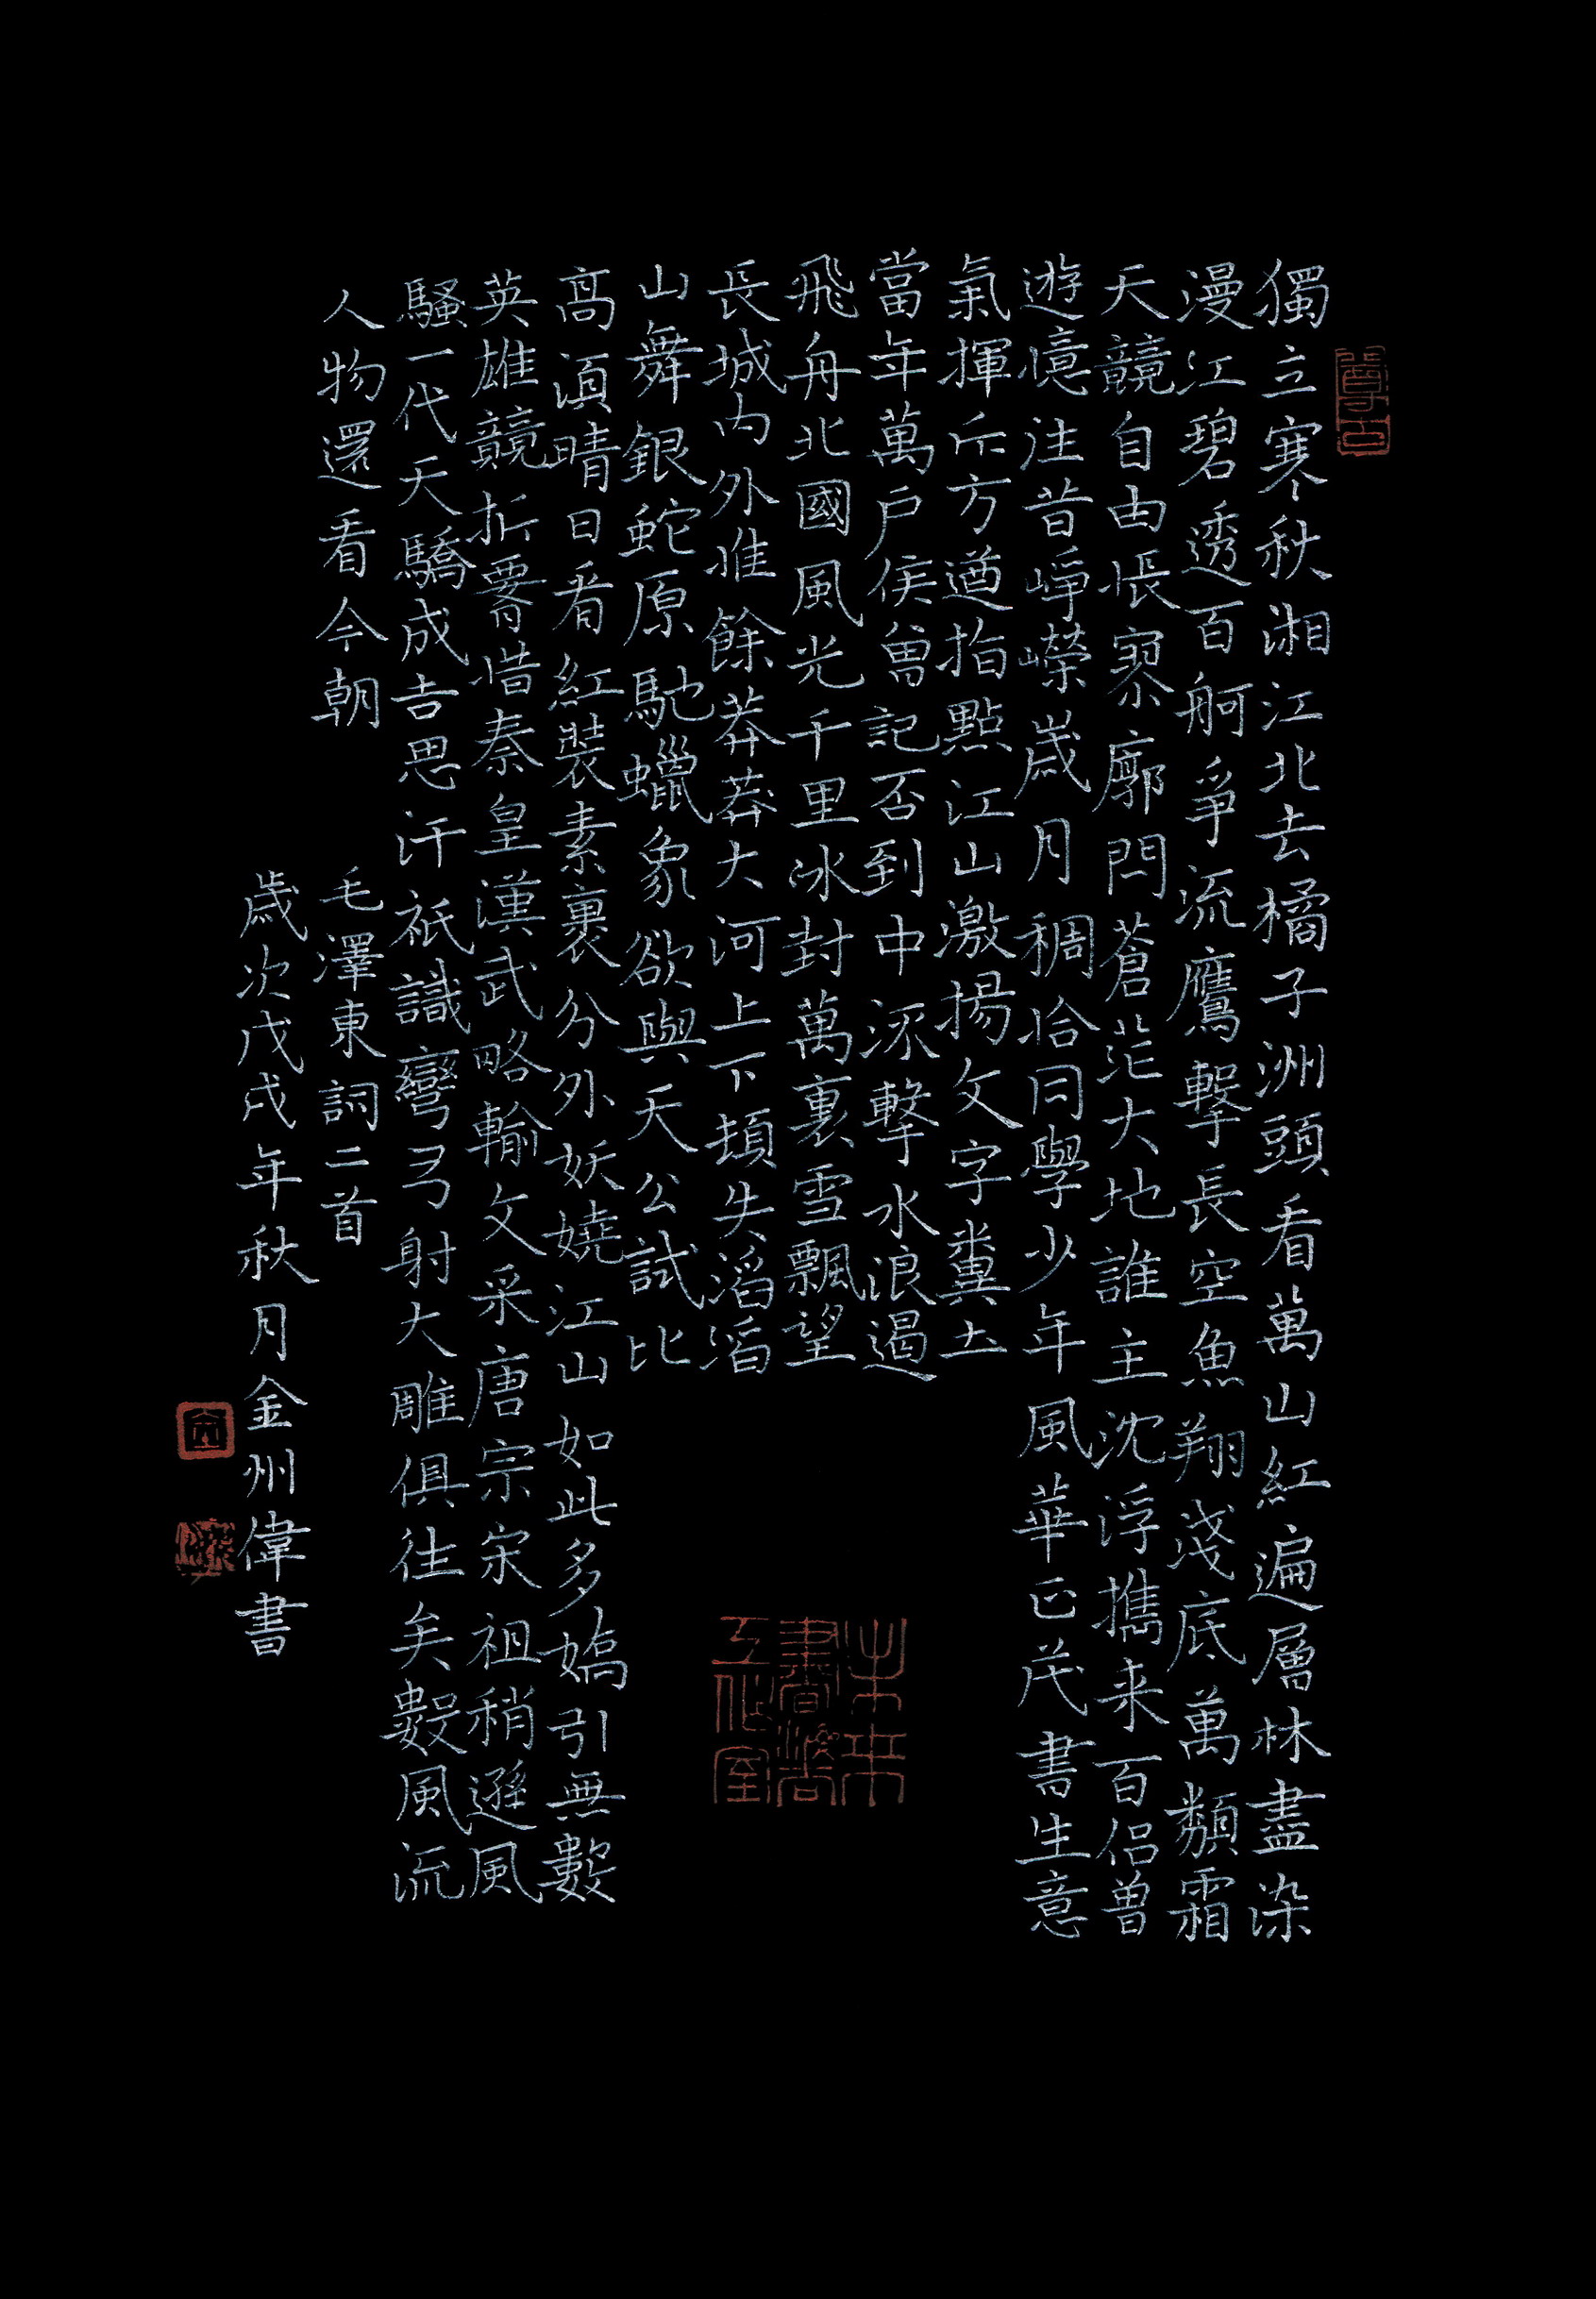 獨立寒秋湘江北去橘子洲頭看萬山紅遍層林盡染
漫江碧透百舸爭流鷹擊長空魚翔淺底萬類霜
天競自由悵寥廓問蒼茫大地誰主沈浮攜来百侣曾
遊憶往昔崢嶸歲月稠恰同學少年風華正茂書生意
氣揮斥方遒指點江山激揚文字糞土
當年萬户侯曾記否到中流擊水浪遏
飛舟北國風光千里冰封萬裏雪飄望
長城内外惟餘莽莽大河上下頓失滔滔
山舞銀蛇原馳蠟象欲與天公試比
高須晴日看紅裝素裹分外妖嬈江山如此多嬌引無數
英雄競折腰惜秦皇漢武略輸文采唐宗宋祖稍遜風
騷一代天驕成吉思汗衹識彎弓射大雕俱往矣數風流
人物還看今朝
毛澤東詞二首
歲次戊戌年秋月金州偉書
未来書法工作室